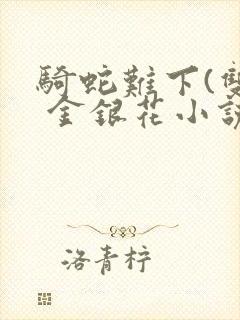 騎蛇難下(雙
金銀花小說
洛青柠